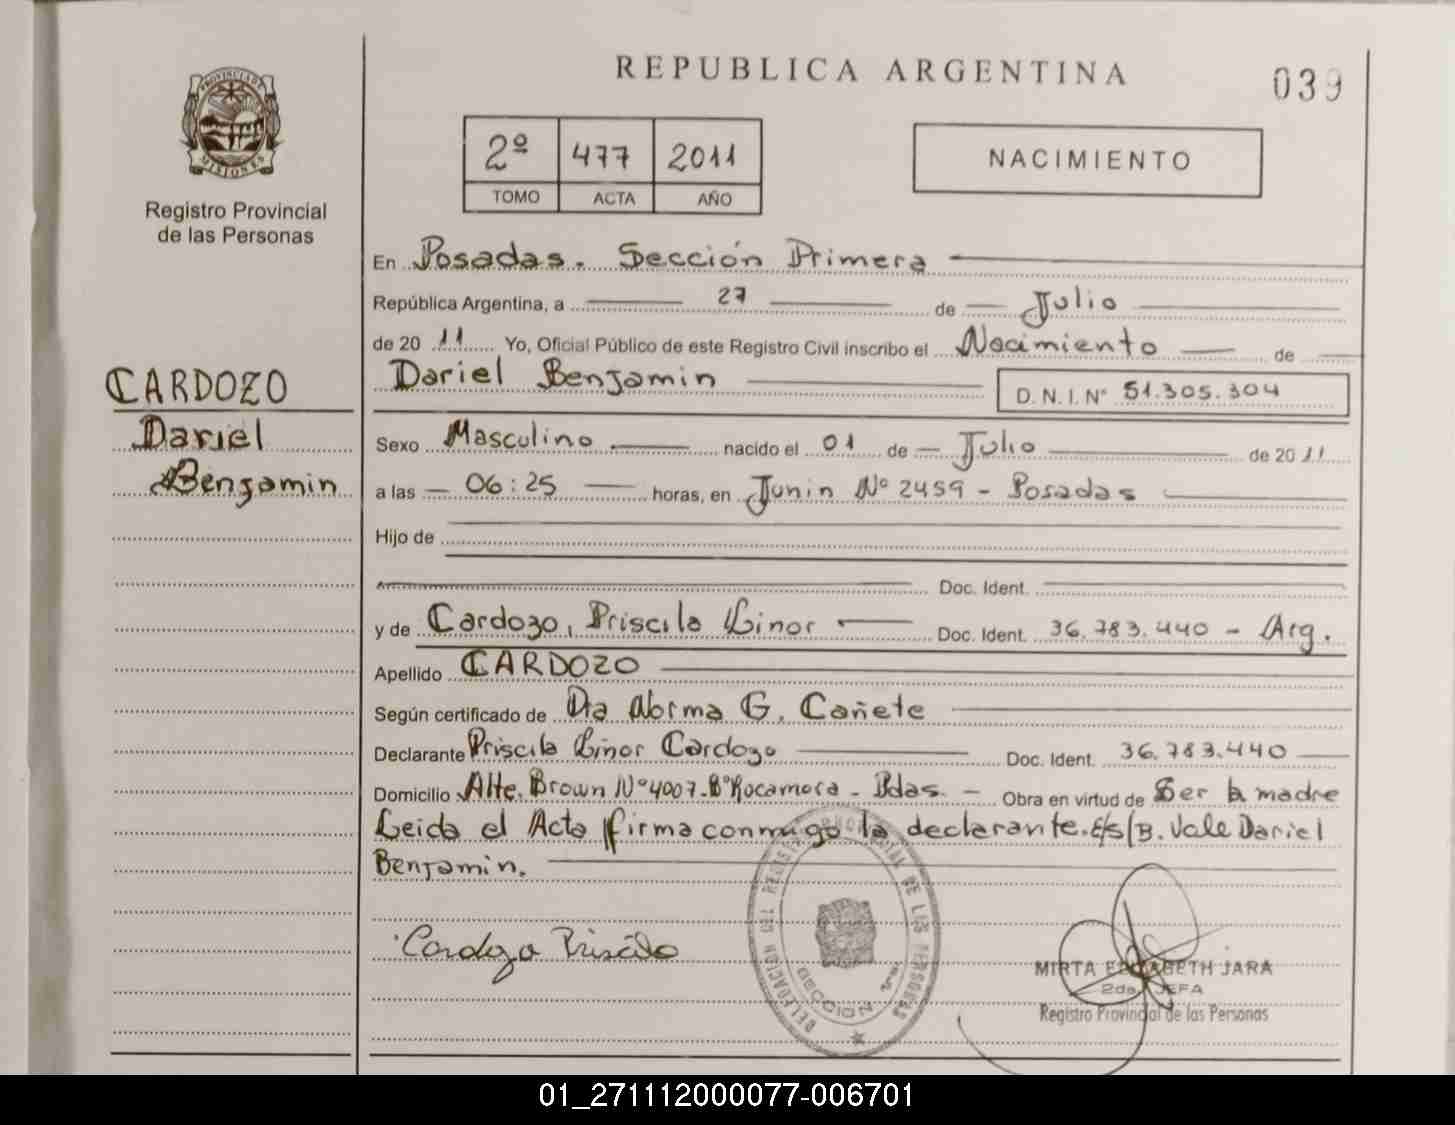 REPUBLICA ARGENTINA
039
PROVINCIA DE
MISIONES
Registro Provincial
de las Personas
2º 477 2011
TOMO ACTA AÑO
NACIMIENTO
En Posadas. Sección Primera
República Argentina, a 27 de Julio
de 20 11 Yo, Oficial Público de este Registro Civil inscribo el Nacimiento de
Dariel Benjamin D.N.I. Nº 51.305.304
CARDOZO
Dariel
Benjamin
Sexo Masculino nacido el 01 de Julio de 20 11
a las 06:25 horas, en Junin Nº 2459 - Posadas
Hijo de
Doc. Ident.
y de Cardozo, Priscila Linor Doc. Ident. 36.783.440 - Arg.
Apellido CARDOZO
Según certificado de Dra Norma G. Cañete
Declarante Priscila Linor Cardozo Doc. Ident. 36.783.440
Domicilio Alte. Brown Nº 4007-Bº Rocamora - Pdas. - Obra en virtud de Ser la madre
Leida el Acta firma conmigo la declarante. E/s/B. Vale Dariel
Benjamin.
Cardozo Priscila
DELEGACION DEL REGISTRO PROVINCIAL DE LAS PERSONAS
SECCION 1ra
MIRTA ELIZABETH JARA
2da. JEFA
Registro Provincial de las Personas
01_271112000077-006701